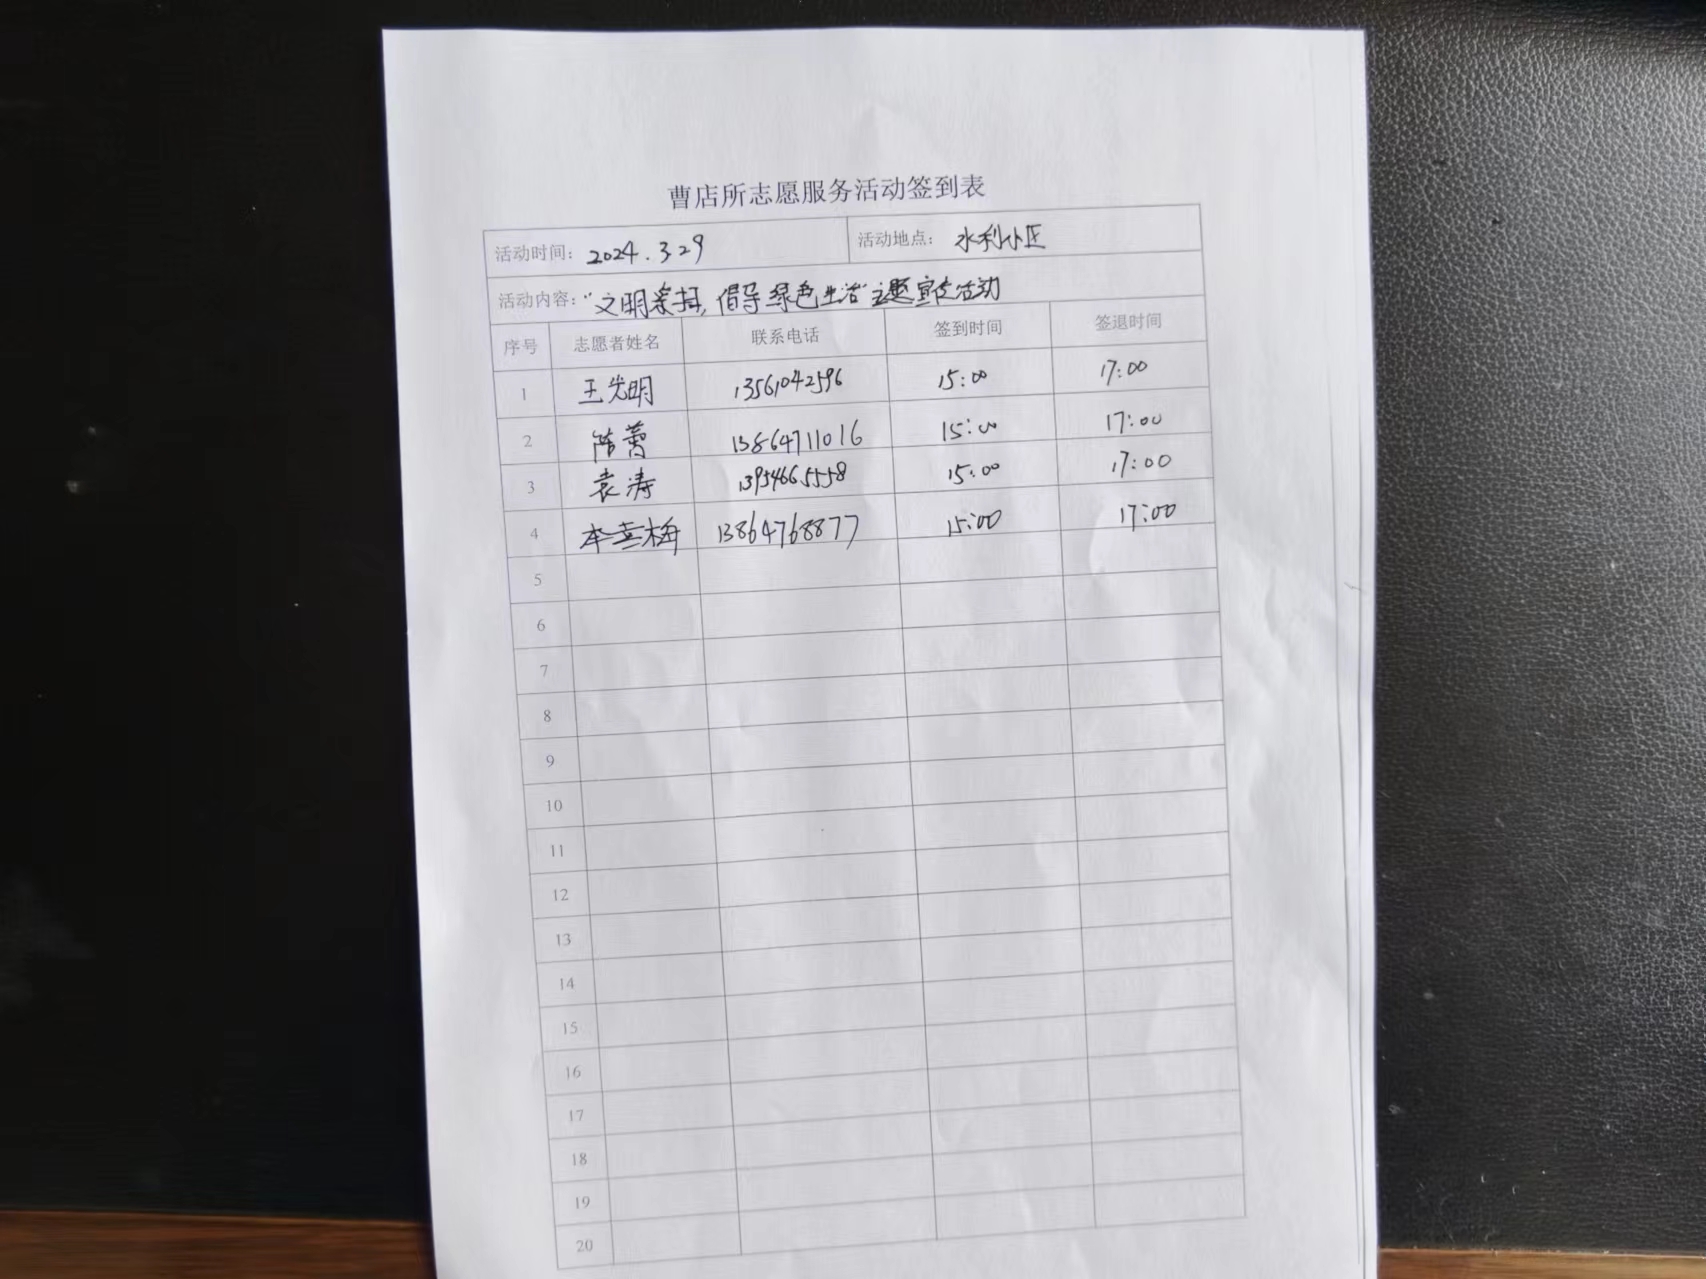 曹店所志愿服务活动签到表
活动时间：2024.3.29 活动地点：水利小区
活动内容："文明祭扫，倡导绿色生活"主题宣传活动
序号 志愿者姓名 联系电话 签到时间 签退时间
1 王光明 13561042596 15:00 17:00
2 陈蕾 13864711016 15:00 17:00
3 袁涛 13954665558 15:00 17:00
4 李喜梅 13864768877 15:00 17:00
5
6
7
8
9
10
11
12
13
14
15
16
17
18
19
20